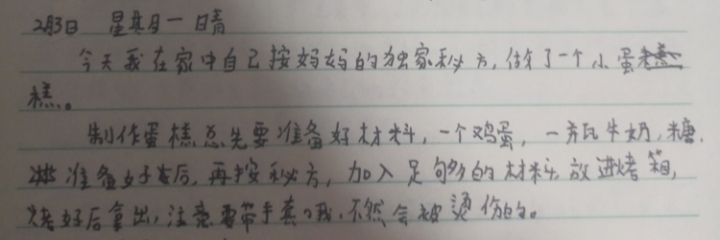 2月3日 星其月一 日晴
今天我在家中自己按妈妈的独家秘方，做了一个小蛋
糕。
制作蛋糕总先要准备好材料，一个鸡蛋，一瓶牛奶，糖，
准备好后，再按秘方，加入足够多的材料，放进烤箱，
烤好后拿出，注意要带手套哦，不然会被烫伤的。